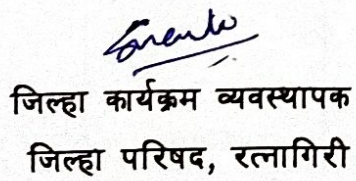 जिल्हा कार्यक्रम व्यवस्थापक
जिल्हा परिषद, रत्नागिरी